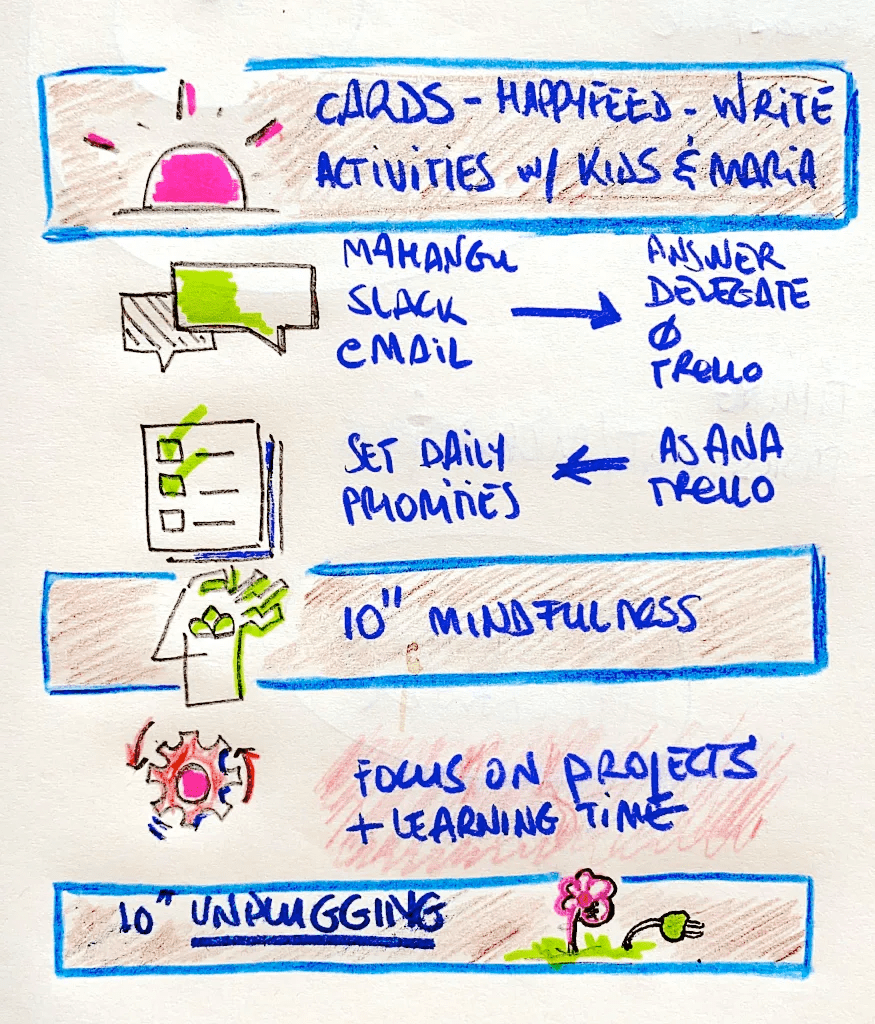 CARDS - HAPPYFEED - WRITE
ACTIVITIES w/ KIDS & MARIA
MAHANGU
SLACK
EMAIL
ANSWER
DELEGATE
Ø
TRELLO
SET DAILY
PRIORITIES
ASANA
TRELLO
10" MINDFULNESS
FOCUS ON PROJECTS
+ LEARNING TIME
10" UNPLUGGING